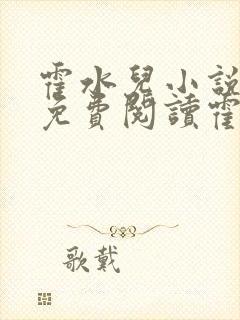 霍水兒小說
免費閱讀霍
歌戴